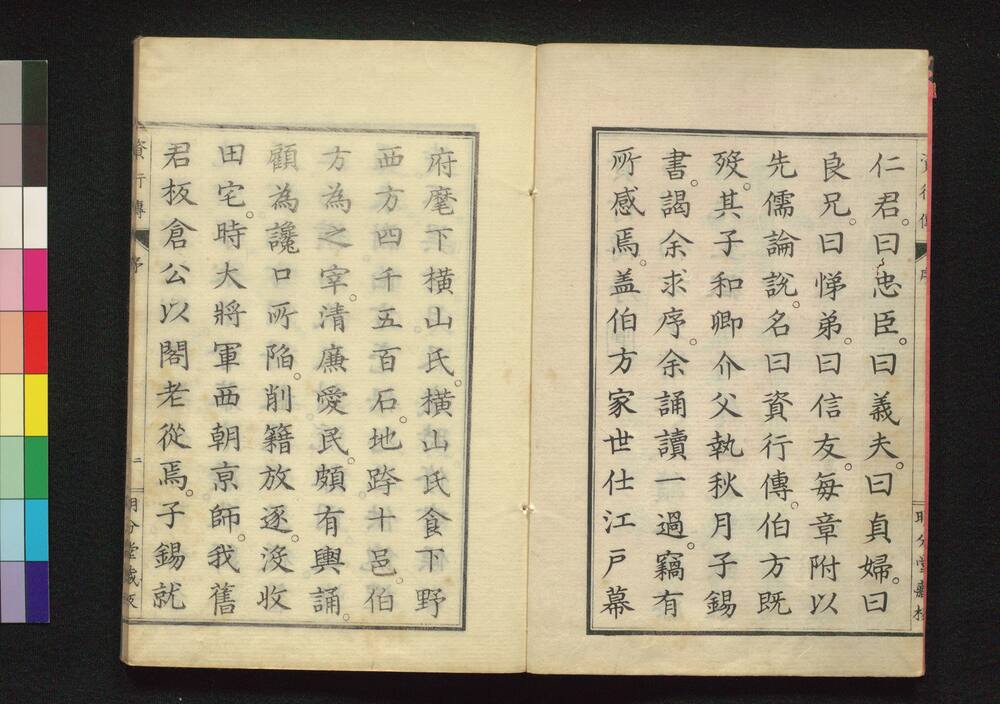 仁君。曰忠臣。曰義夫。曰貞婦。曰
良兄。曰悌弟。曰信友。每章附以
先儒論說。名曰資行傳。伯方既
歿。其子和卿介父執秋月子錫
書。謁余求序。余誦讀一過。竊有
所感焉。盖伯方家世仕江戶幕
府麾下橫山氏。橫山氏食下野
西方四千五百石。地跨十邑。伯
方為之宰。清廉愛民。頗有輿誦。
顧為讒口所陷。削籍放逐。沒收
田宅。時大將軍西朝京師。我舊
君板倉公以閣老從焉。子錫就
資行傳
序
二